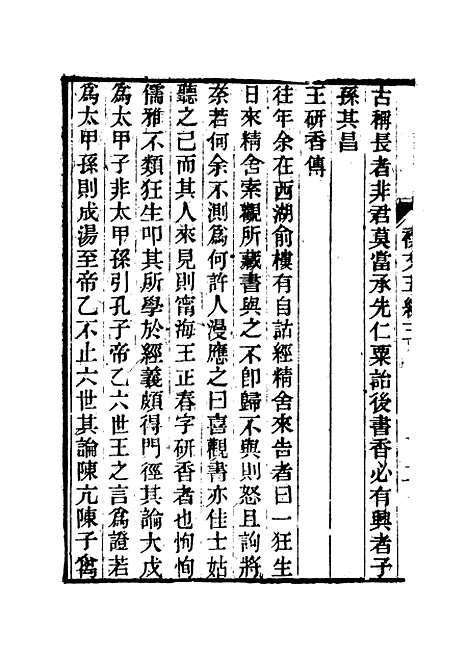 古稱長者非君莫當承先仁粟詒後書香必有興者子
孫其昌
王研香傳
往年余在西湖俞樓有自詁經精舍來告者曰一狂生
日來精舍索觀所藏書與之不卽歸不與則怒且訽將
柰若何余不測爲何許人漫應之曰喜觀書亦佳士姑
聽之已而其人來見則甯海王正春字研香者也恂恂
儒雅不類狂生叩其所學於經義頗得門徑其論大戊
爲太甲子非太甲孫引孔子帝乙六世王之言爲證若
爲太甲孫則成湯至帝乙不止六世其論陳亢陳子禽